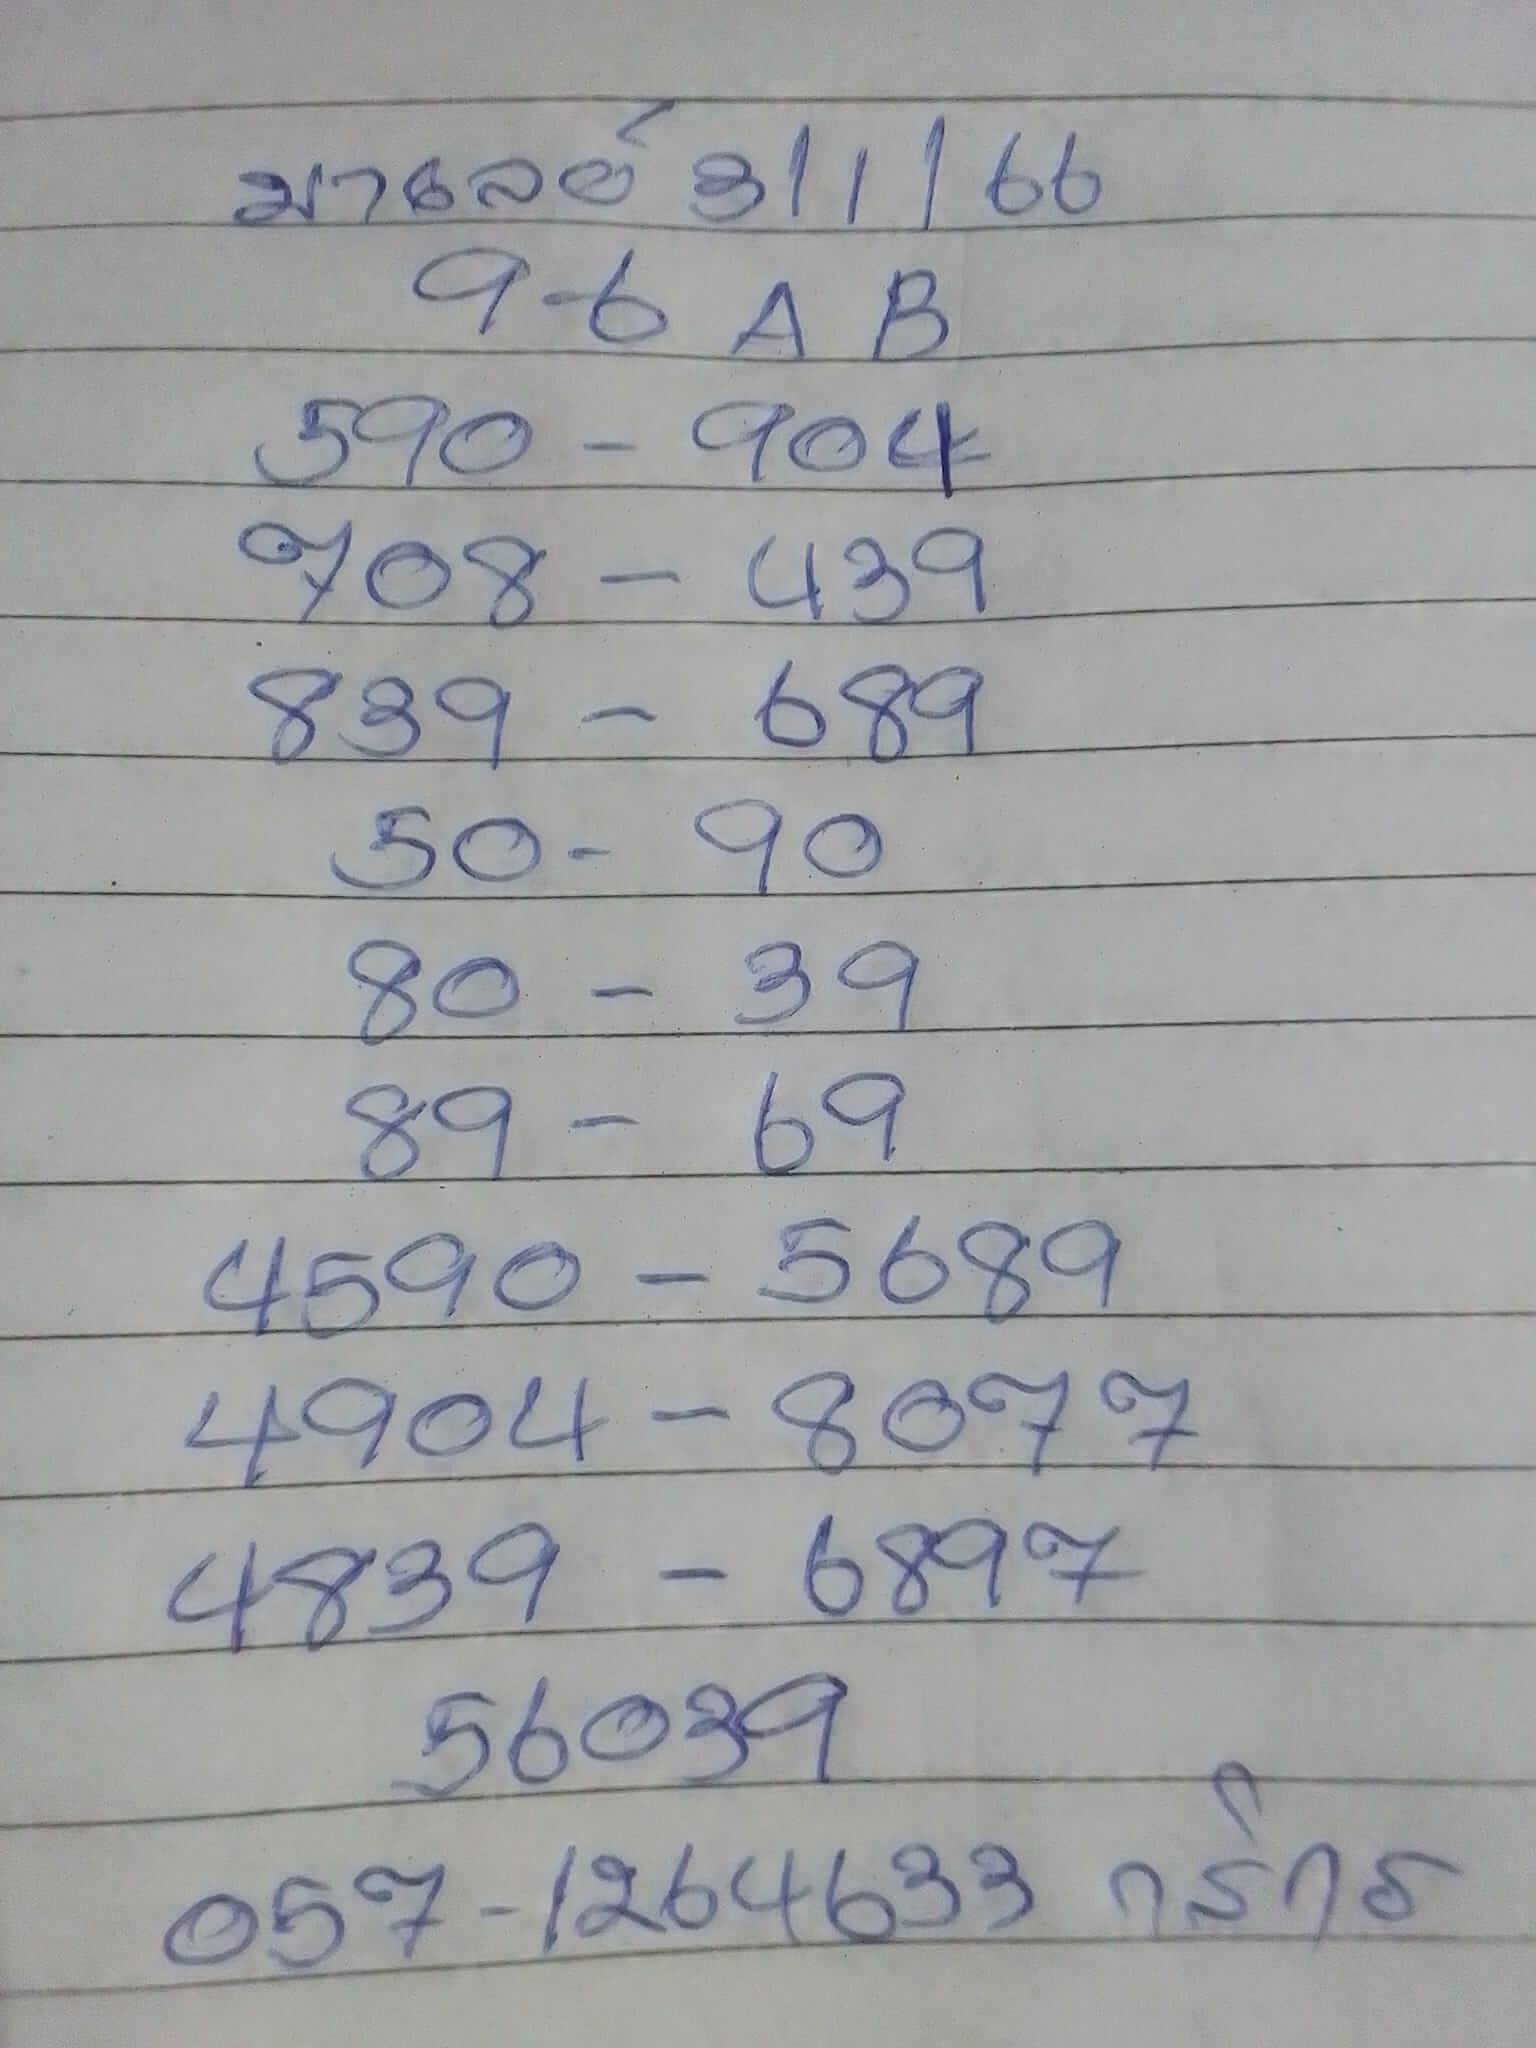 มาเลย์ 3/1/66
9-6 A B
590 - 904
708 - 439
839 - 689
50 - 90
80 - 39
89 - 69
4590 - 5689
4904 - 8077
4839 - 6897
56039
057-1264633 กสิกร